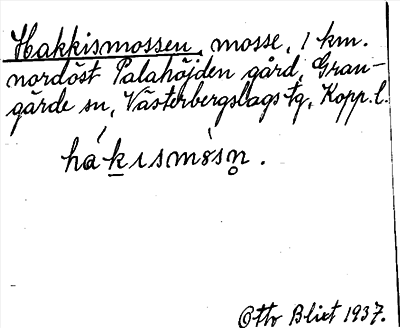 Hakkismossen, mosse, 1 km.
nordöst Palahöjden gård, Gran-
gärde sn, Västerbergslags tg, Kopp. l.
hákısmòsn̥.
Otto Blixt 1937.